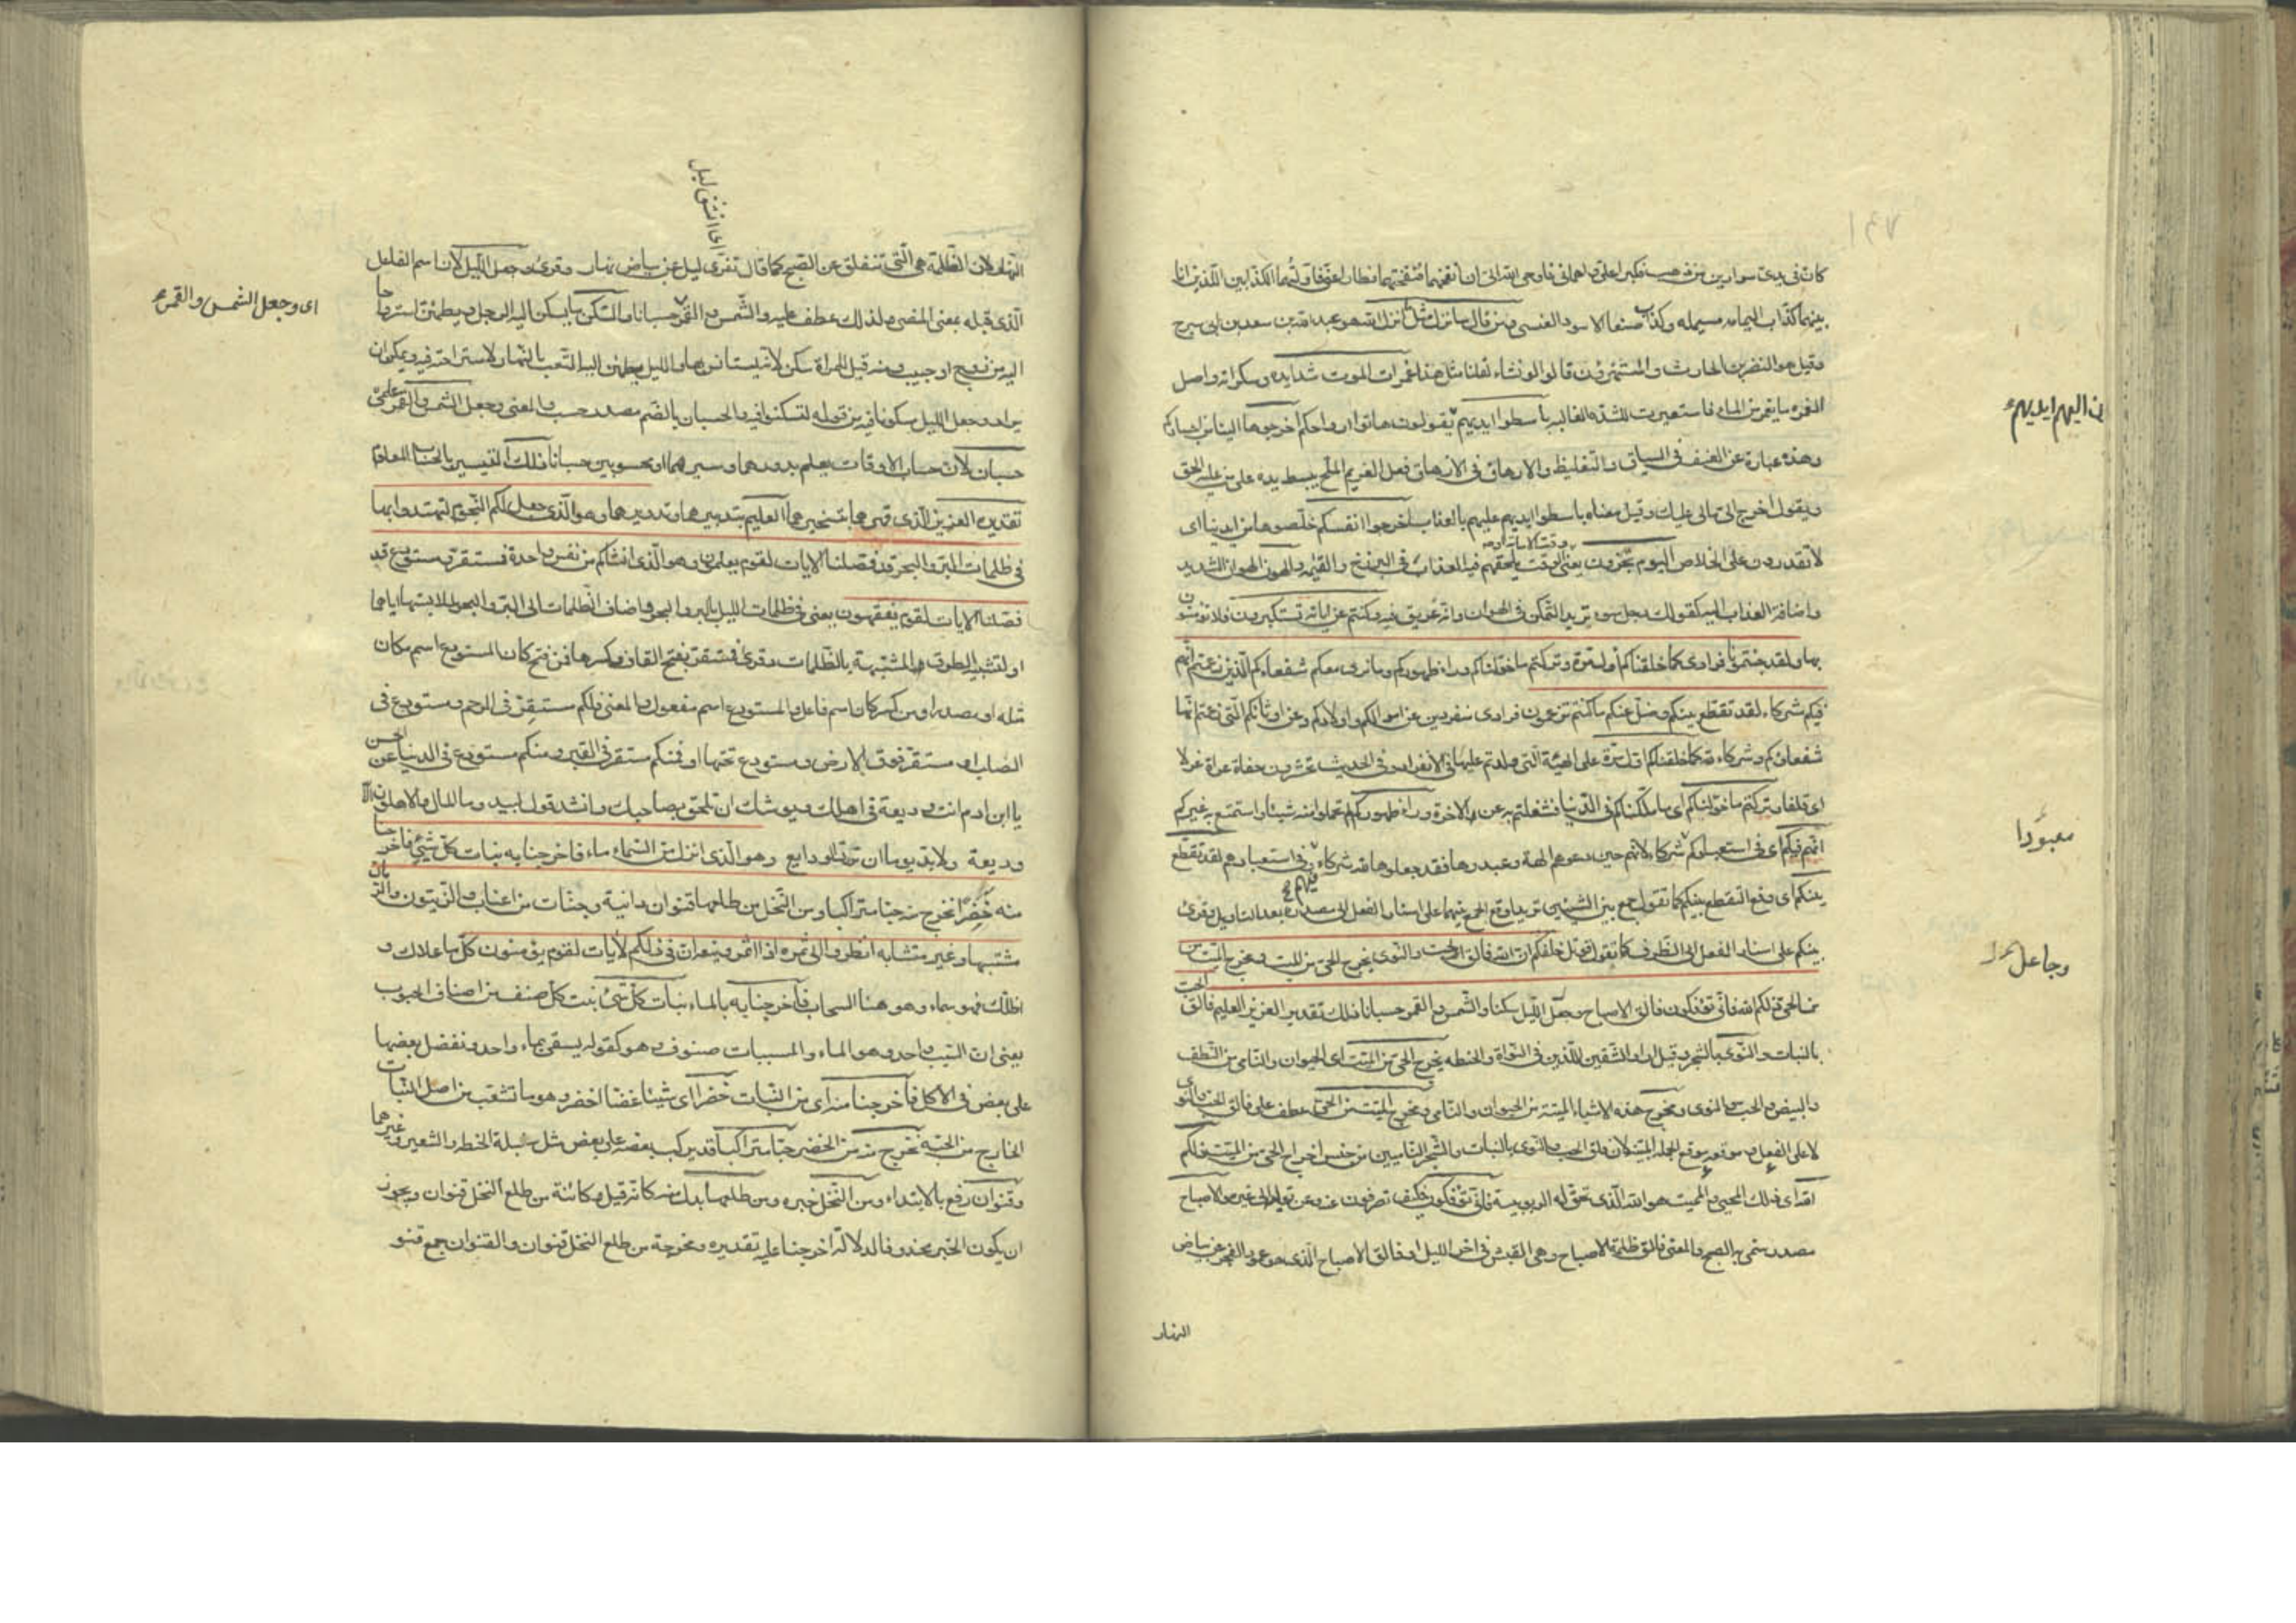 كان في يدي سوارين من ذهب فكبرا علي واهماني فاوحى الله الي ان انفخهما فنفختهما فطارا عني فاولتهما الكذابين اللذين انا
بينهما كذاب اليمامه مسيلمه وكذاب صنعا الاسود العنسي ومن قال سانزل مثل ما انزل الله هو عبد الله بن سعد بن ابي سرح
وقيل هو النضر بن الحارث والمستهزؤن قالوا لو نشاء لقلنا مثل هذا غمرات الموت شدايده وسكراته واصل
الغمره ما يغمر من الماء فاستعيرت للشده الغالبه باسطوا ايديهم يقولون هاتوا ارواحكم اخرجوها الينا من اجسادكم
ن اليهم ايديهم
وهذه عبارة عن العنف في السياق والتغليظ والارهاق في الازهاق فعل الغريم الملح يبسط يده على من عليه الحق
ويقول اخرج الي مالي عليك وقيل معناه باسطوا ايديهم عليهم بالعذاب اخرجوا انفسكم خلصوها من ايدينا اي
لا تقدرون على الخلاص اليوم تجزون يعني الوقت يلحقهم فيه العذاب في البرزخ والقيمه والهون الهوان الشديد
واضافة العذاب اليه كقولك رجل سوء تريد التمكن في الهوان وانه عريق فيه وكنتم عن اياته تستكبرون فلا تؤمنون
بها ولقد جئتمونا فرادى كما خلقناكم اول مرة وتركتم ما خولناكم وراء ظهوركم وما نرى معكم شفعاءكم الذين زعمتم انهم
فيكم شركاء لقد تقطع بينكم وضل عنكم ما كنتم تزعمون فرادى منفردين عن اموالكم واولادكم وعن اوثانكم التي زعمتم انها
شفعاؤكم وشركاء لله كما خلقناكم اول مرة على الهيئة التي ولدتم عليها في الانفراد وفي الحديث تحشرون حفاة عراة غرلا
اي قلفا وتركتم ما خولناكم اي ما ملكناكم في الدنيا فشغلتم به عن الاخرة وراء ظهوركم لم تحملوا منه شيئا واستمتع به غيركم
معبودا
انهم فيكم اي في استعبادكم شركاء لانهم حين دعوهم الهة وعبدوها فقد جعلوها لله شركاء فيهم وفي استعبادهم لقد تقطع
بينكم اي وقع التقطع بينكم كما تقول جمع بين الشيئين تريد اوقع الجمع بينهما على اسناد الفعل الى مصدره بهذا التاويل وقرئ
بينكم على اسناد الفعل الى الظرف كما تقول قوتل خلفكم ان الله فالق الحب والنوى يخرج الحي من الميت ومخرج الميت
وجاعل
من الحي ذلكم الله فانى تؤفكون فالق الاصباح وجعل الليل سكنا والشمس والقمر حسبانا ذلك تقدير العزيز العليم فالق الحب
بالنبات والنوى بالشجر وقيل اراد الشقين اللذين في النواة والحنطه يخرج الحي من الميت اي الحيوان والنامي من النطف
والبيض والحب والنوى ومخرج هذه الاشياء الميتة من الحيوان والنامي ومخرج الميت من الحي عطف على فالق الحب والنوى
لا على الفعل وموقعه موقع الجمله المبينة لان فلق الحب والنوى بالنبات والشجر الناميين من جنس اخراج الحي من الميت ذلكم
الله اي ذلك المحيي والمميت هو الله الذي تحق له الربوبيه فانى تؤفكون فكيف تصرفون عنه وعن توليه الى غيره والاصباح
مصدر سمي به الصبح والمعنى فالق ظلمة الاصباح وهي الغبش في اخر الليل او فالق الاصباح الذي هو عمود الفجر عن بياض
النهار
اي انشق ليل
النهار لان الظلمة هي التي تنفلق عن الصبح كما قال تفرى ليل عن بياض نهار وقرئ وجعل الليل لان اسم الفاعل
اي وجعل الشمس والقمر
الذي قبله بمعنى المضي ولذلك عطف عليه والشمس والقمر حسبانا والسكن ما يسكن اليه الرجل ويطمئن استرواحا
اليه من زوج او حبيب ومنه قيل للمراة سكن لانه يستانس بها والليل يطمئن اليه التعب بالنهار لاستراحته فيه ويمكن ان
يراد وجعل الليل مسكونا فيه من قوله لتسكنوا فيه والحسبان بالضم مصدر حسب والمعنى وجعل الشمس والقمر علمي
حسبان لان حساب الاوقات يعلم بدورهما وسيرهما او محسوبين حسبانا ذلك التيسير بالحساب المعلوم
تقدير العزيز الذي قهرهما بتسخيرهما العليم بتدبيرهما وتدويرهما وهو الذي جعل لكم النجوم لتهتدوا بها
في ظلمات البر والبحر قد فصلنا الايات لقوم يعلمون وهو الذي انشاكم من نفس واحدة فمستقر ومستودع قد
فصلنا الايات لقوم يفقهون يعني في ظلمات الليل بالبر والبحر واضاف الظلمات الى البر والبحر لملابستها اياهما
او لتشبيه الطرق المشتبهة بالظلمات وقرئ فمستقر بفتح القاف وكسرها فمن فتح كان المستودع اسم مكان
مثله او مصدرا ومن كسر كان اسم فاعل والمستودع اسم مفعول والمعنى فلكم مستقر في الرحم ومستودع في
الصلب او مستقر فوق الارض ومستودع تحتها او فمنكم مستقر في القبر ومنكم مستودع في الدنيا عن الحسن
يا ابن ادم انت وديعة في اهلك ويوشك ان تلحق بصاحبك وانشد قول لبيد وما المال والاهلون الا
وديعة ولا بد يوما ان ترد الودايع وهو الذي انزل من السماء ماء فاخرجنا به نبات كل شيء فاخرجنا
منه خضرا نخرج منه حبا متراكبا ومن النخل من طلعها قنوان دانية وجنات من اعناب والزيتون والرمان
مشتبها وغير متشابه انظروا الى ثمره اذا اثمر وينعه ان في ذلكم لايات لقوم يؤمنون كل ما علاك و
اظلك فهو سماء وهو هنا السحاب فاخرجنا به بالماء نبات كل شيء نبت كل صنف من اصناف الحبوب
يعني ان السبب واحد وهو الماء والمسببات صنوف وهو كقوله يسقى بماء واحد ونفضل بعضها
على بعض في الاكل فاخرجنا منه اي من النبات خضرا اي شيئا غضا اخضر وهو ما تشعب من اصل النبات
الخارج من الحبه نخرج منه من الخضر حبا متراكبا قد يركب بعضه على بعض مثل سنبلة الحنطه والشعير وغيرهما
وقنوان رفع بالابتداء ومن النخل خبره ومن طلعها بدل منه كانه قيل وكائنة من طلع النخل قنوان ويجوز
ان يكون الخبر محذوفا لدلالة اخرجنا عليه تقديره ومخرجة من طلع النخل قنوان والقنوان جمع قنو